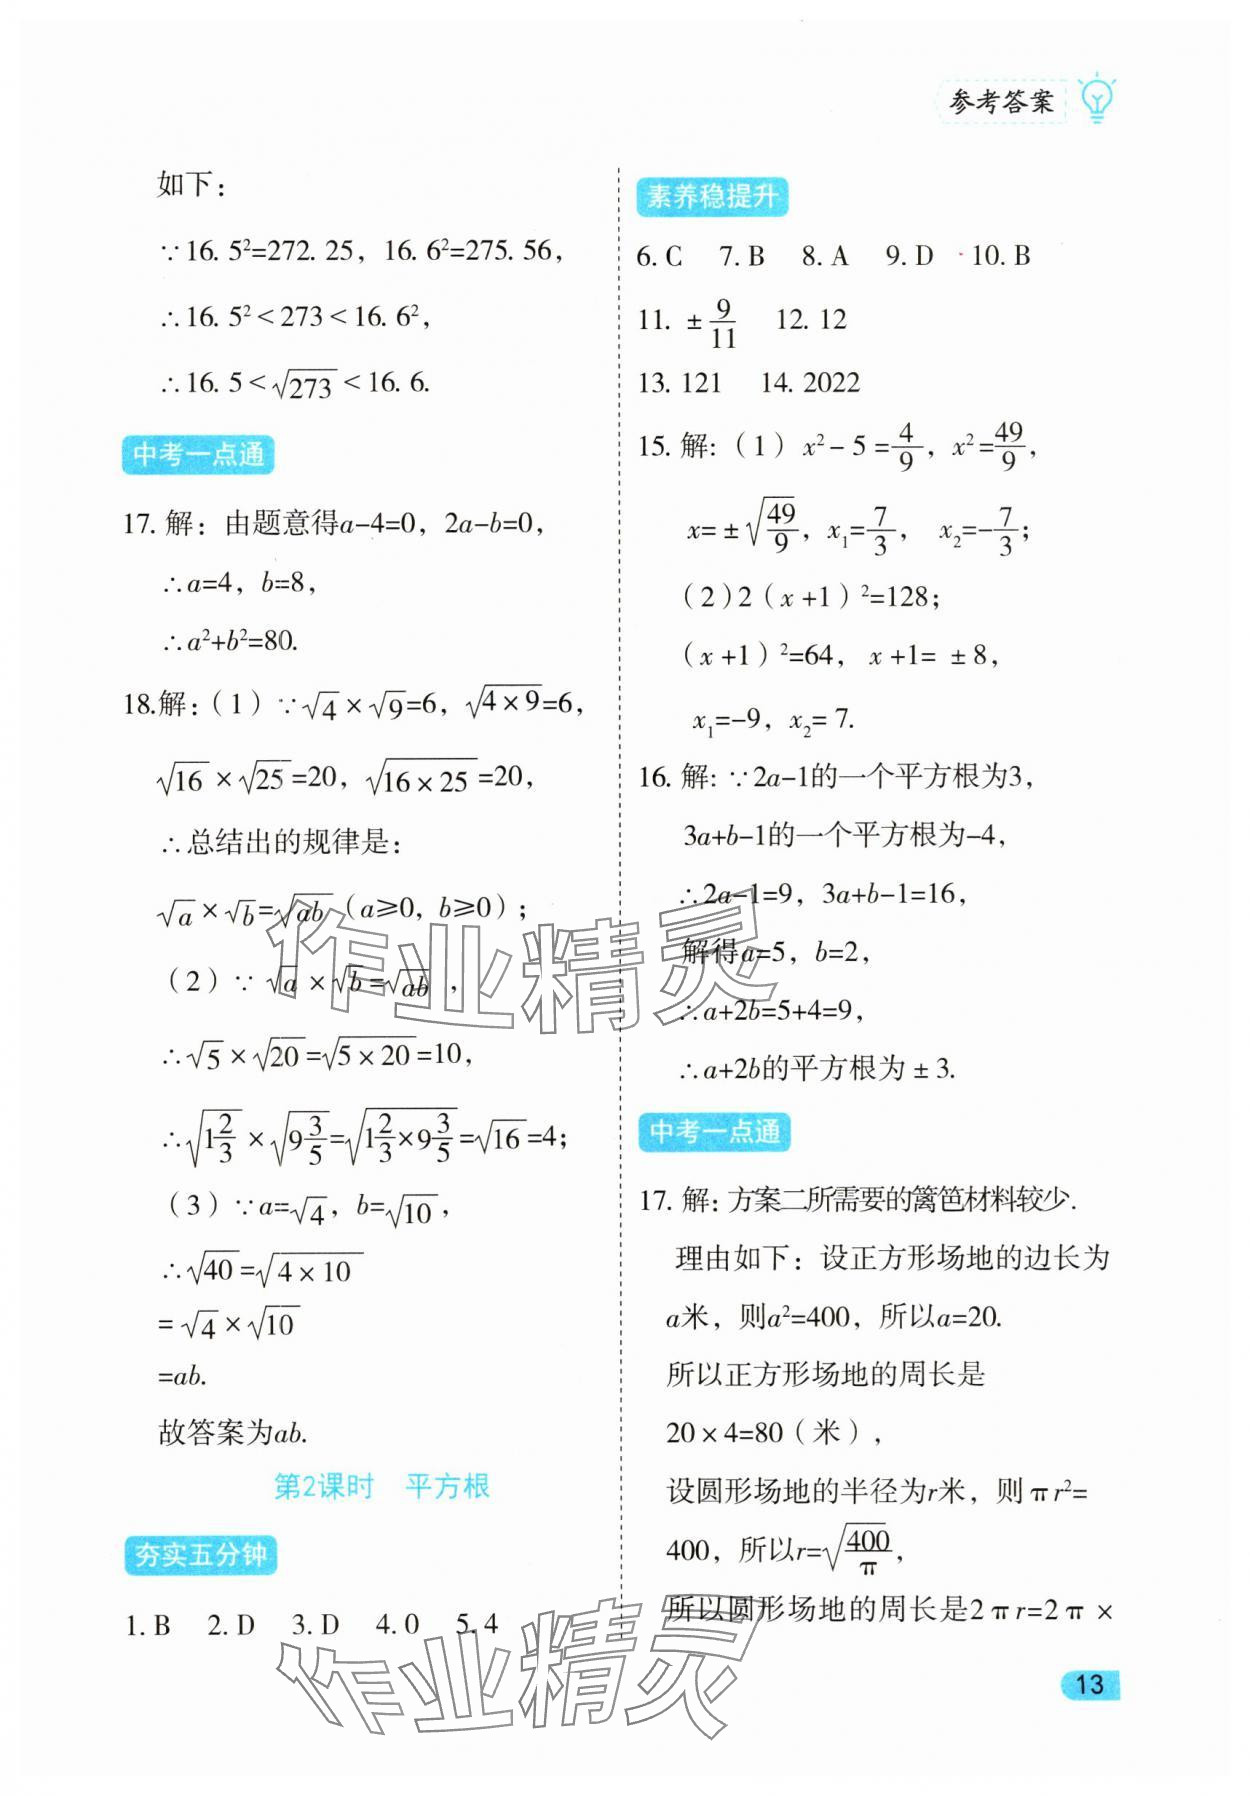 参考答案
如下：
∵16.5²=272.25，16.6²=275.56，
∴16.5²＜273＜16.6²，
∴16.5＜√273＜16.6.
中考一点通
17. 解：由题意得a-4=0，2a-b=0，
∴a=4，b=8，
∴a²+b²=80.
18.解：（1）∵√4×√9=6，√(4×9)=6，
√16×√25=20，√(16×25)=20，
∴总结出的规律是：
√a×√b=√ab（a≥0，b≥0）；
（2）∵√a×√b=√ab，
∴√5×√20=√(5×20)=10，
∴√(1 2/3)×√(9 3/5)=√(1 2/3×9 3/5)=√16=4；
（3）∵a=√4，b=√10，
∴√40=√(4×10)
=√4×√10
=ab.
故答案为ab.
第2课时 平方根
夯实五分钟
1. B 2. D 3. D 4. 0 5. 4
素养稳提升
6. C 7. B 8. A 9. D 10. B
11. ±9/11 12. 12
13. 121 14. 2022
15. 解：（1）x²-5=4/9，x²=49/9，
x=±√(49/9)，x₁=7/3， x₂=-7/3；
（2）2（x+1）²=128；
（x+1）²=64，x+1=±8，
x₁=-9，x₂=7.
16. 解：∵2a-1的一个平方根为3，
3a+b-1的一个平方根为-4，
∴2a-1=9，3a+b-1=16，
解得a=5，b=2，
∴a+2b=5+4=9，
∴a+2b的平方根为±3.
中考一点通
17. 解：方案二所需要的篱笆材料较少.
理由如下：设正方形场地的边长为
a米，则a²=400，所以a=20.
所以正方形场地的周长是
20×4=80（米），
设圆形场地的半径为r米，则πr²=
400，所以r=√(400/π)，
所以圆形场地的周长是2πr=2π×
13
作业精灵
作业精灵